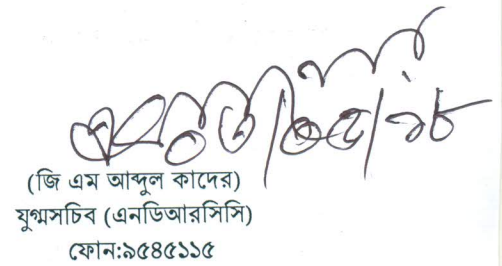 (জি এম আব্দুল কাদের)
যুগ্মসচিব (এনডিআরসিসি)
ফোন:৯৫৪৫১১৫